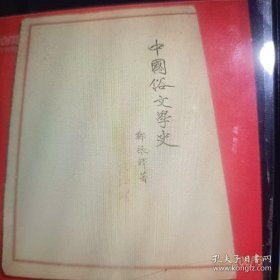 中國俗文學史
鄭振鐸著
孔夫子旧书网